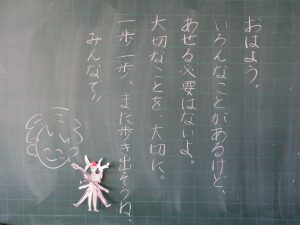 おはよう。
いろんなことがあるけど、
あせる必要はないよ。
大切なことを、大切に。
一歩一歩、また歩き出そうね、
みんなで!!